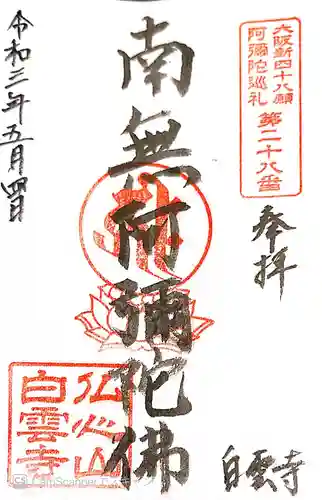 大阪新四十八願
阿彌陀巡礼 第二十八番
奉拝
白雲寺
南無阿彌陀佛
令和三年五月四日
仏心山
白雲寺
CamScanner